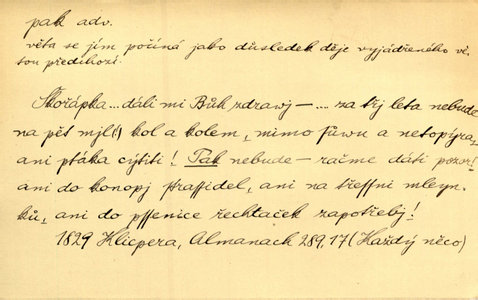 pak adv.
věta se jím počíná jako důsledek děje vyjádřeného vě-
tou předchozí.
Škořápka... dáli mi Bůh zdrawj — .... za třj leta nebude
na pět mjl(!) kol a kolem, mimo sůwu a netopýra,
ani ptáka cýtiti! Pak nebude — račme dáti pozor!
ani do konopj straffidel, ani na třeffni mleyn-
ků, ani do pffenice řechtaček zapotřebj!
1829 Klicpera, Almanach 289,17 (Každý něco)